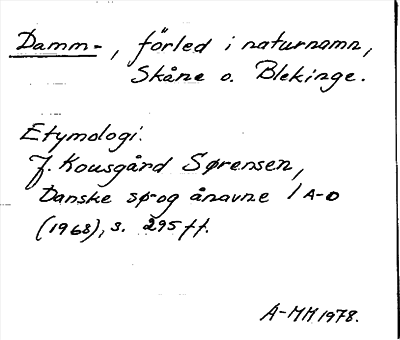 Damm-, förled i naturnamn,
Skåne o. Blekinge.
Etymologi:
J. Kousgård Sørensen,
Danske sø-og ånavne 1 A-D
(1968), s. 295 ff.
A-MH 1978.